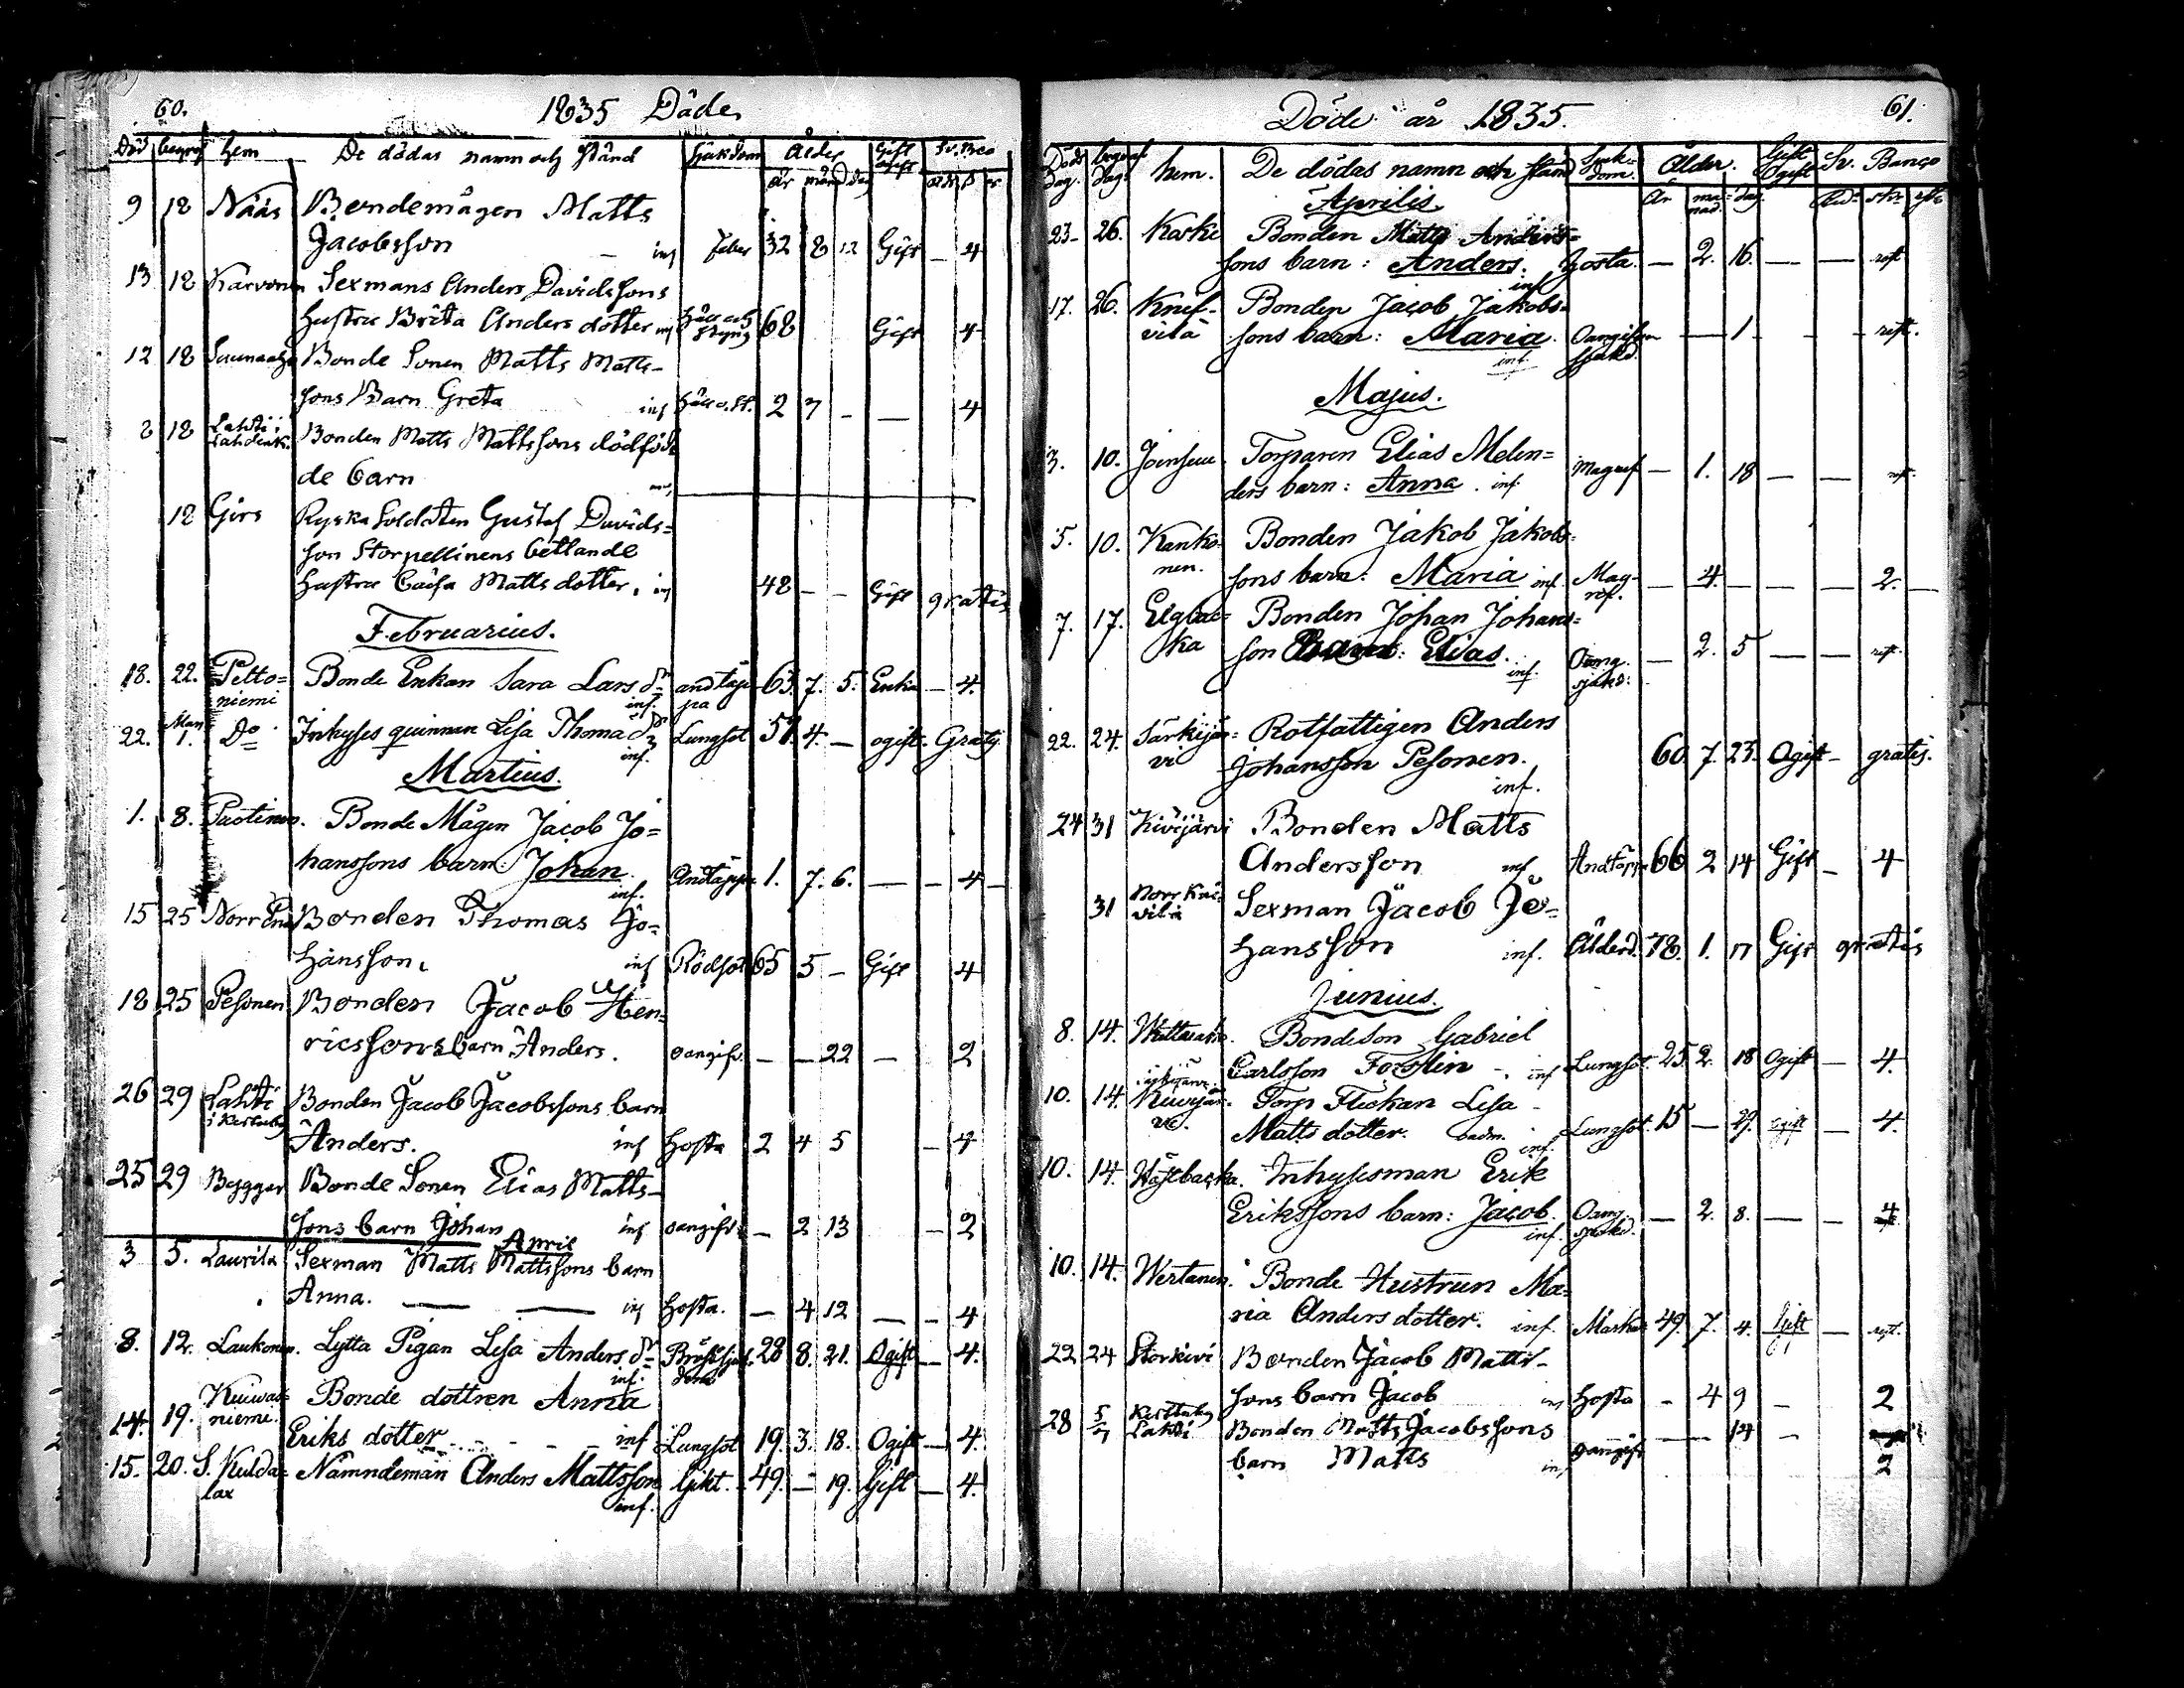 60.
1835 Döde
Död begrof hem De dödas namn och stånd Sjukdom Ålder Gift ogift Sv. Bco
år mån dag
9 18 Nääs Bondemågen Matts
Jacobsson inf feber 32 8 12 Gift — 4
13 18 Karvonen Sexmans Anders Davidssons
hustru Brita Anders dotter inf Håll och styng 68 Gift 4
12 18 Bonde Sonen Matts Matts-
sons Barn Greta inf Håll o. st. 2 7 - — 4
2 18 Lahti i Bonden Matts Mattssons dödföd
de barn
18 Girs Ryska Soldaten Gustaf Davids=
son Storpellinens bettlande
hustru Caisa Matts dotter. inf 48 - - Gift gratis
Februarius.
18. 22. Petto= Bonde Enkan Sara Lars dr andtäp 63. 7. 5. Enka — 4.
niemi inf. pa
22. Mars 1. Do Inhyses quinnan Lisa Thomä dr Lungsot 57. 4. — ogift. Gratis
inf.
Martius.
1. 8. Bonde Mågen Jacob Jo=
hanssons barn: Johan. Andtäppa 1. 7. 6. — - 4 -
inf.
15 25 Norr Bonden Thomas Jo=
hansson. inf Rödsot 65 5 — Gift 4
18 25 Pesonen Bonden Jacob Hen=
ricssons barn Anders. oangifv. — — 22 — 2
26 29 Lahti Bonden Jacob Jacobssons barn
i Kertuby
Anders. inf Hosta 2 4 5 - 4
25 29 Byggar Bonde Sonen Elias Matts-
sons barn Johan inf oangifv. — 2 13 - 2
April
3 5. Laurila Sexman Matts Mattssons barn
Anna. — — inf Hosta. — 4 12 — - 4
8. 12. Laukonen. Lytta Pigan Lisa Anders dr Bröstsjuk= 28 8. 21. Ogift — 4.
inf. dom
14. 19. Kuiwas= Bonde dottren Anna
nieme.
Eriks dotter - - - inf Lungsot 19. 3. 18. Ogift — 4.
15. 20. S. Kulda= Nämndeman Anders Mattsson Gikt. 49. — 19. Gift — 4.
lax inf.
61.
Döde år 1835.
Död Dag. begraf dag. hem. De dödas namn och stånd Sjuk= dom. Ålder. Gift Ogift Sv. Banço
År må= nad. dag.
Aprilis.
23- 26. Koski Bonden Matts Anders=
sons barn: Anders. Hosta. — 2. 16. — —
inf
17. 26. Knif- Bonden Jacob Jakobs=
vilä sons barn: Maria. Oangifven — 1
inf. sjukd.
Majus.
3. 10. Joensuu Torparen Elias Melen=
ders barn: Anna. inf. Magref — 1. 18 — —
5. 10. Kanko= Bonden Jakob Jakobs=
nen. sons barn: Maria inf Mag= — 4. — — — 2. —
ref.
7. 17. Elgbac= Bonden Johan Johans=
ka son barn: Elias. Oang. — 2. 5 — —
inf. sjukd:
22. 24. Särkijär= Rotfattigen Anders
vi Johansson Pesonen. 60 7. 23. Ogift — gratis.
inf.
24 31 Kivijärvi Bonden Matts
Andersson inf Andtäppa 66 2 14 Gift — 4
31 Norr Kni= Sexman Jacob Jo=
vilä
hansson inf. Ålderd. 78. 1. 17 Gift gratis
Junius.
8. 14. Bondeson Gabriel
Carlsson Forstin - inf Lungsot. 25 2. 18 Ogift — 4.
10. 14. Kiwijär= Torp Flickan Lisa
vi. Matts dotter. inf. Lungsot. 15 — 29. ogift — 4.
10. 14. Inhysesman Erik
Erikssons barn: Jacob. Oang. — 2. 8. — — 4
inf. sjukd.
10. 14. Wertanen. Bonde Hustrun Ma=
ria Anders dotter. inf. 49. 7. 4. Gift —
22 24 Storkivi Bonden Jacob Matts-
sons barn Jacob inf Hosta - 4 9 - 2
28 5/7 Kerttuby Lahti Bonden Matts Jacobssons
barn Matts inf oangift — 14 - 2